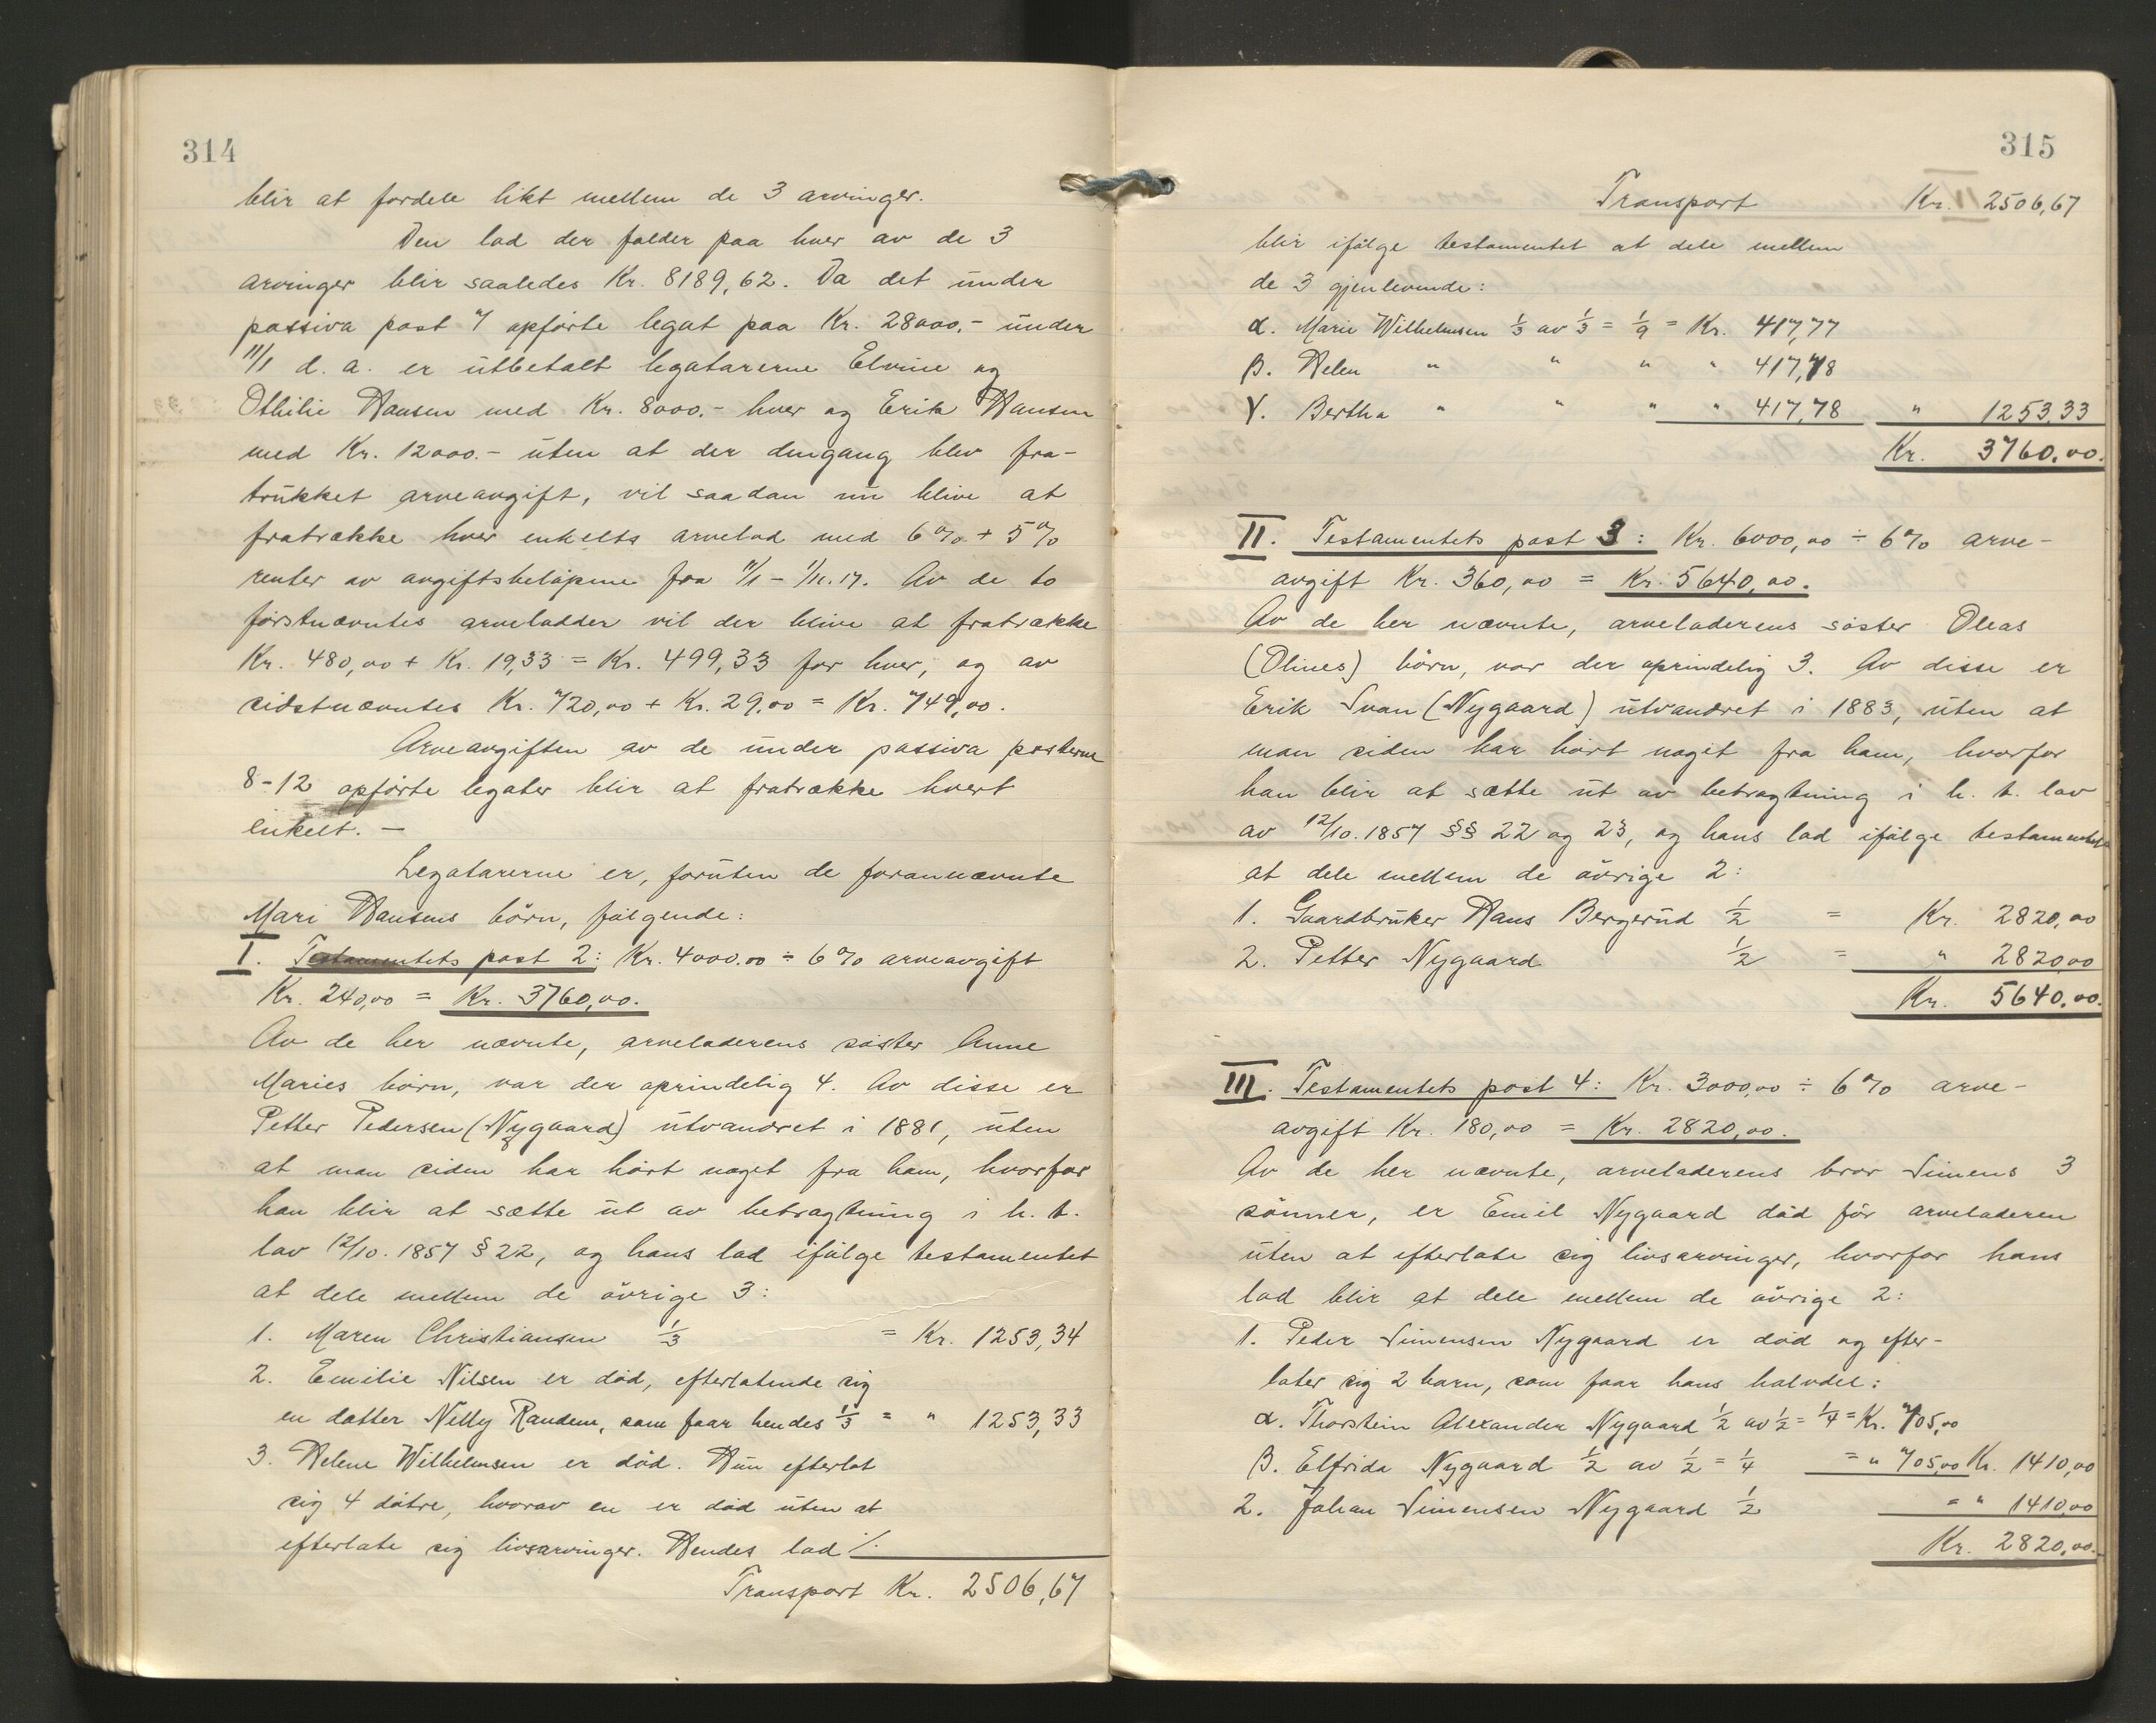 314
blir at fordele likt mellem de 3 arvinger.
Den lod der falder paa hver av de 3
arvinger blir saaledes Kr. 8189,62. Da det under
passiva post 7 opførte legat paa Kr. 28000,- under
11/1 d. a. er utbetalt legatarerne Elvine og
Othilie Hansen med Kr. 8000.- hver og Erik Hansen
med Kr. 12000.- uten at der dengang blev fra-
trukket arveavgift, vil saadan nu blive at
fratrække hver enkelts arvelod med 6% + 5%
renter av avgiftsbeløpene fra 11/1 - 1/11.17. Av de to
førstnævntes arvelodder vil der blive at fratrække
Kr. 480,00 + Kr. 19,33 = Kr. 499,33 for hver, og av
sidstnævntes Kr. 720,00 + Kr. 29,00 = Kr. 749,00.
Arveavgiften av de under passiva posterne
8-12 opførte legater blir at fratrække hvert
enkelt. —
Legatarerne er, foruten de forannævnte
Mari Hansens børn, følgende:
I. Testamentets post 2: Kr. 4000.00 ÷ 6% arveavgift
Kr. 240,00 = Kr. 3760,00.
Av de her nævnte, arveladerens søster Anne
Maries børn, var der oprindelig 4. Av disse er
Petter Pedersen (Nygaard) utvandret i 1881, uten
at man siden har hørt noget fra ham, hvorfor
han blir at sætte ut av betragtning i h. t.
lov 12/10. 1857 § 22, og hans lod ifølge testamentet
at dele mellem de øvrige 3:
1. Maren Christiansen 1/3 = Kr. 1253,34
2. Emilie Nilsen er død, efterlatende sig
en datter Nelly Randem, som faar hendes 1/3 = " 1253,33
3. Helene Wilhelmsen er død. Hun efterlot
sig 4 døtre, hvorav en er død uten at
efterlate sig livsarvinger. Hendes lod ./.
Transport Kr. 2506,67
315
Transport Kr. 2506,67
blir ifølge testamentet at dele mellem
de 3 gjenlevende:
α. Marie Wilhelmsen 1/3 av 1/3 = 1/9 = Kr. 417,77
β. Helen " " " " 417,78
γ. Bertha " " " " 417,78 " 1253,33
Kr. 3760,00.
II. Testamentets post 3: Kr. 6000,00 ÷ 6% arve-
avgift Kr. 360,00 = Kr. 5640,00.
Av de her nævnte, arveladerens søster Oleas
(Olines) børn, var der oprindelig 3. Av disse er
Erik Svan (Nygaard) utvandret i 1883, uten at
man siden har hørt noget fra ham, hvorfor
han blir at sætte ut av betragtning i h. t. lov
av 12/10. 1857 §§ 22 og 23, og hans lod ifølge testamentet
at dele mellem de øvrige 2:
1. Gaardbruker Hans Bergerud 1/2 = Kr. 2820,00
2. Petter Nygaard 1/2 = " 2820,00
Kr. 5640,00.
III. Testamentets post 4: Kr. 3000,00 ÷ 6% arve-
avgift Kr. 180,00 = Kr. 2820,00.
Av de her nævnte, arveladerens bror Simens 3
sønner, er Emil Nygaard død før arveladeren
uten at efterlate sig livsarvinger, hvorfor hans
lod blir at dele mellem de øvrige 2:
1. Peder Simensen Nygaard er død og efter-
later sig 2 barn, som faar hans halvdel:
α. Thorstein Alexander Nygaard 1/2 av 1/2 = 1/4 = Kr. 705,00
β. Elfrida Nygaard 1/2 av 1/2 = 1/4 = " 705,00 Kr. 1410,00
2. Johan Simensen Nygaard 1/2 = " 1410,00
Kr. 2820,00.